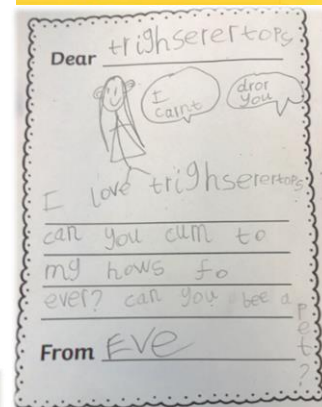 Dear trighserertops
I caint
dror you
I love trighserertops
can you cum to
my hows fo
ever? can you bee a pet?
From Eve